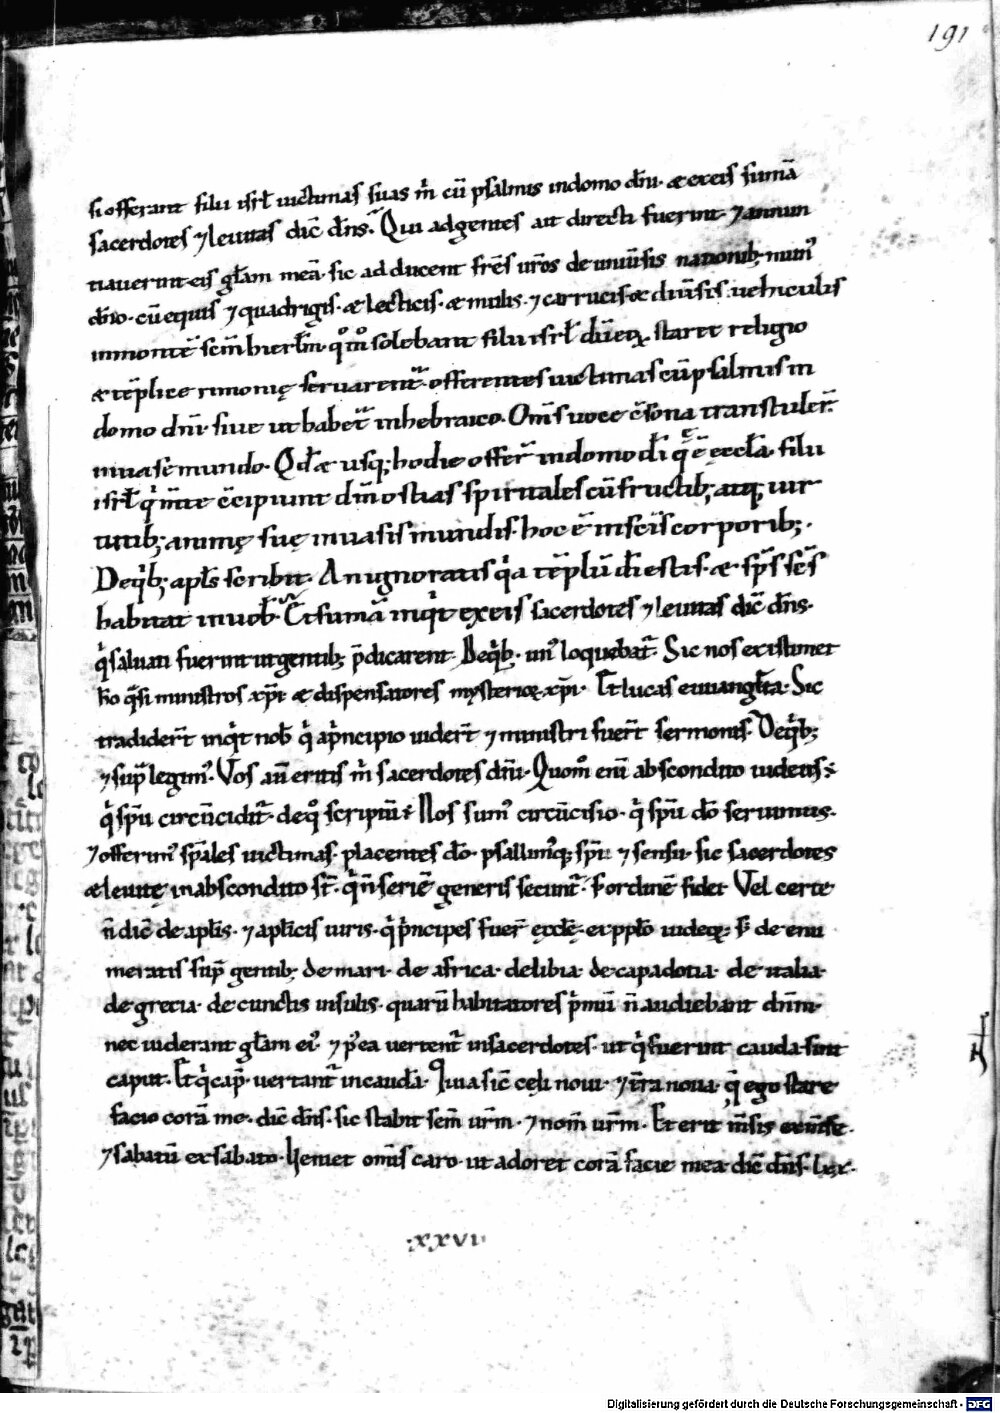 191
si offerant filii isrł uictimas suas m̄ cū psalmis indomo dn̄i· & exeis sumā
sacerdotes ⁊ leuitas dic̄ dn̄s. Qui adgentes aut directi fuerint· ⁊ annun
tiauerint eis głam meā· sic adducent fr̄es ur̄os de uniuersis nationib; mun᷒
dn̄o· cū equis ⁊ quadrigis· & lecticis· & mulis· ⁊ carrucis· & diuersis uehiculis
inmontē scm̄ hierłm· qͦmͦ solebant filii isrł dū eoꝝ staret religio
& tēpli cerimonię seruarent̄· offerentes uictimas cū psalmis in
domo dn̄i· siue ut habet̄ inhebraico· Om̄s uoce c̄sona transtuler̄·
inuase mundo· Qd̄ & usq; hodie offer̄ indomo dī q̄ ē ęccła· filii
isrł q̇ m̄te c̄cipiunt dm̄ ostias spiritales cū fructib; atq; uir
tutib; animę suę inuasis mundis· hoc ē inscīs corporib;·
Deq̇b; apłs scribit· An ignoratis q̇a tēplū dī estis· & sp̄s scs̄
habitat inuob̄· Et sumā inq̇t exeis sacerdotes ⁊ leuitas dic̄ dn̄s·
q̇ saluati fuerint ut gentib; p̄dicarent· Deq̇b; un᷒ loquebat̄· Sic nos existimet
ho q̄si ministros xp̄i· & dispensatores mysterioꝝ xp̄i· Et lucas euuangłta· Sic
tradider̄t inq̇t nob̄ q̇ aṗncipio uider̄t ⁊ ministri fuer̄t sermonis· Deq̇b;
⁊ sup̄ legim᷒· Vos aū eritis m̄ sacerdotes dn̄i· Quomͦ enī abscondito iudeus ē
q̇ spū circūcidit̄· deqͦ scriptū ē Nos sum᷒ circūcisio· q̇ spū dō seruimus·
⁊ offerim᷒ sp̄ales uictimas· placentes dō· psallim᷒q; spū ⁊ sensu· sic sacerdotes
& leuitę inabscondito st̄· q̇ n̄ seriē generis secunt̄· s; ordinē fidei Vel certe
n̄ dic̄ de apłis· ⁊ apłicis uiris· q̇ ṗncipes fuer̄ ęccłę· expp̄lo iudeoꝝ· s; de enu
meratis sup̄ gentib; de mari· de africa· delibia· de capadotia· de italia·
de grecia· de cunctis insulis· quarū habitatores ṗmū n̄ audiebant dn̄m·
nec uiderant głam ei᷒· ⁊ p᷒ea uertent̄ insacerdotes· ut q̇ fuerunt cauda· sint
caput· Et q̇ cap᷒· uertant̄ incaudā· Quia sic̄ cęli noui· ⁊ t̄ra noua· q̄ ego stare
facio corā me· dic̄ dn̄s· sic stabit sem̄ ur̄m· ⁊ nom̄ ur̄m· Et erit m̄sis exm̄se·
⁊ sabatū exsabato· Ueniet om̄is caro· ut adoret corā facie mea dic̄ dn̄s·
·xxvi·
Digitalisierung gefördert durch die Deutsche Forschungsgemeinschaft - DFG